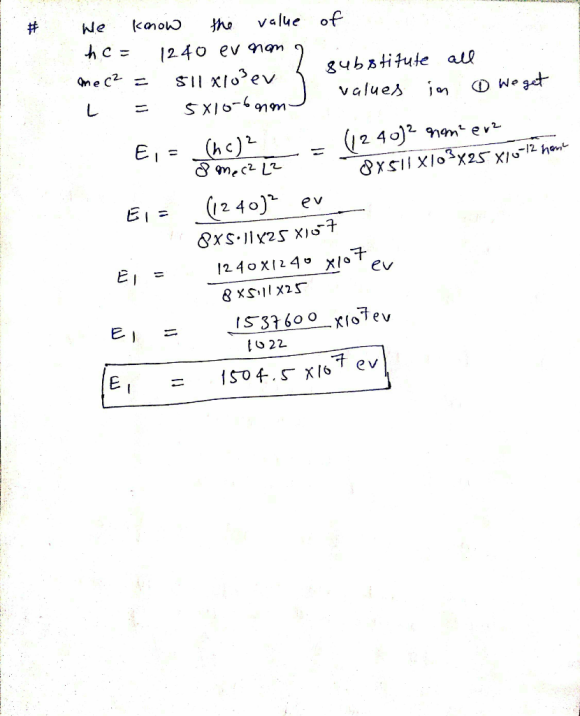 # We know the value of
hc = 1240 ev nm
mec² = 511 x10³ ev
L = 5 x10⁻⁶ nm
substitute all
values in ① we get
E₁ = (hc)² / 8 mec² L² = (1240)² nm² ev² / 8x511 x10³x25 x10⁻¹² nm²
E₁ = (1240)² ev / 8x5.11x25 x10⁻⁷
E₁ = 1240x1240 x10⁷ ev / 8x5.11x25
E₁ = 1537600 x10⁷ ev / 1022
E₁ = 1504.5 x10⁷ ev